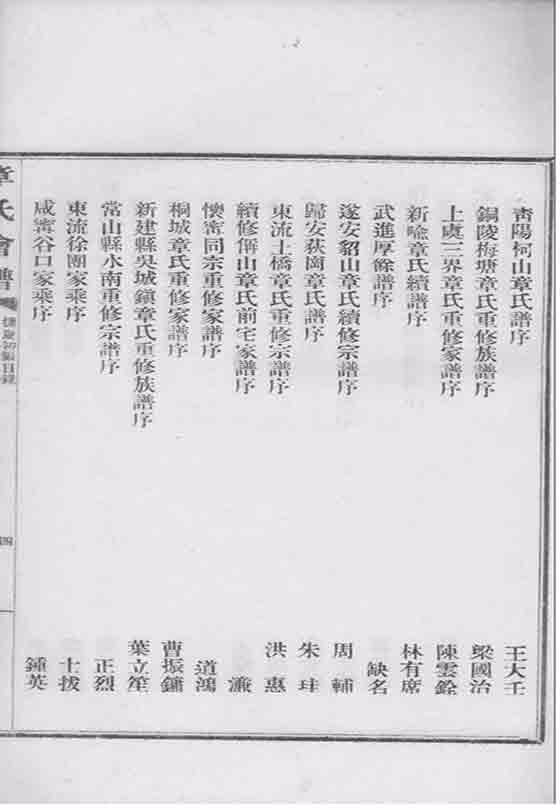 青陽柯山章氏譜序 王大壬
銅陵梅塘章氏重修族譜序 梁國治
上虞三界章氏重修家譜序 陳雲銓
新喩章氏續譜序 林有席
武進厚餘譜序 缺名
遂安貂山章氏續修宗譜序 周輔
歸安荻崗章氏譜序 朱珪
東流土橋章氏重修宗譜序 洪惠
續修偁山章氏前宅家譜序 濂
懷甯同宗重修家譜序 道鴻
桐城章氏重修家譜序 曹振鏞
新建縣吳城鎮章氏重修族譜序 葉立笙
常山縣水南重修宗譜序 正烈
東流徐團家乘序 士拔
咸甯谷口家乘序 鍾英
章氏會譜
初編目錄
四